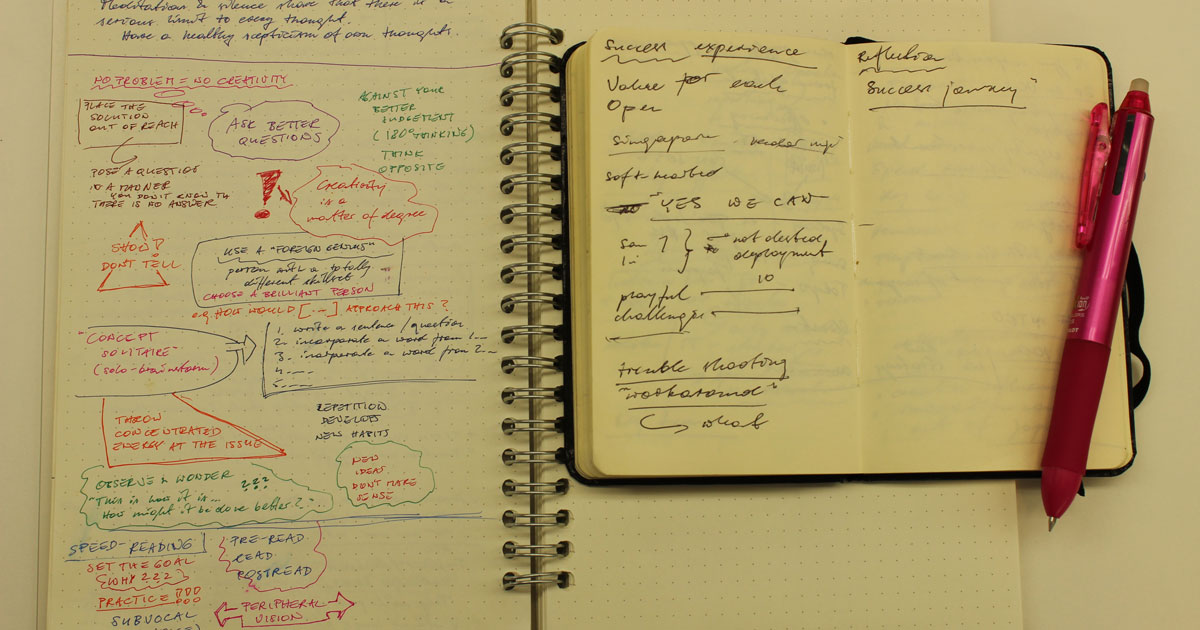 Meditation & silence show that there is a
serious limit to every thought.
Have a healthy scepticism of own thoughts.
NO PROBLEM = NO CREATIVITY
PLACE THE
SOLUTION
OUT OF REACH
ASK BETTER
QUESTIONS
AGAINST YOUR
BETTER
JUDGEMENT
(180° THINKING)
THINK
OPPOSITE
POSE A QUESTION
IN A MANNER
YOU DON'T KNOW
THERE IS NO ANSWER
!
Creativity
is a
matter of degree
SHOW!
DON'T TELL
USE A "FOREIGN GENIUS"
person with a totally
different skillset
CHOOSE A BRILLIANT PERSON
e.g. HOW WOULD [...] APPROACH THIS?
"CONCEPT
SOLITAIRE"
(solo-brainstorm)
1. write a sentence/question
2. incorporate a word from 1...
3. incorporate a word from 2...
4....
5....
THROW
CONCENTRATED
ENERGY AT THE ISSUE
REPETITION
DEVELOPS
NEW HABITS
OBSERVE & WONDER
???
"This is how it is...
How might it be done better?"
NEW
IDEAS
DON'T MAKE
SENSE
SPEED-READING
SET THE GOAL
(WHY???)
PRACTICE!!!
SUBVOCAL
PRE-READ
READ
POSTREAD
PERIPHERAL
VISION
Success experience
Value for each
Open
Singapore
soft
"YES WE CAN
not
deployment
10
playful
challenges
trouble shooting
"workaround"
what
Reflection
Success journey"